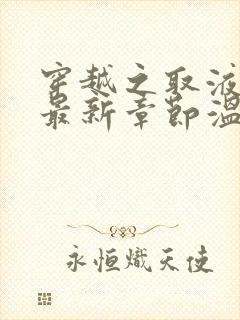 穿越之取液
最新章节温
永恒炽天使